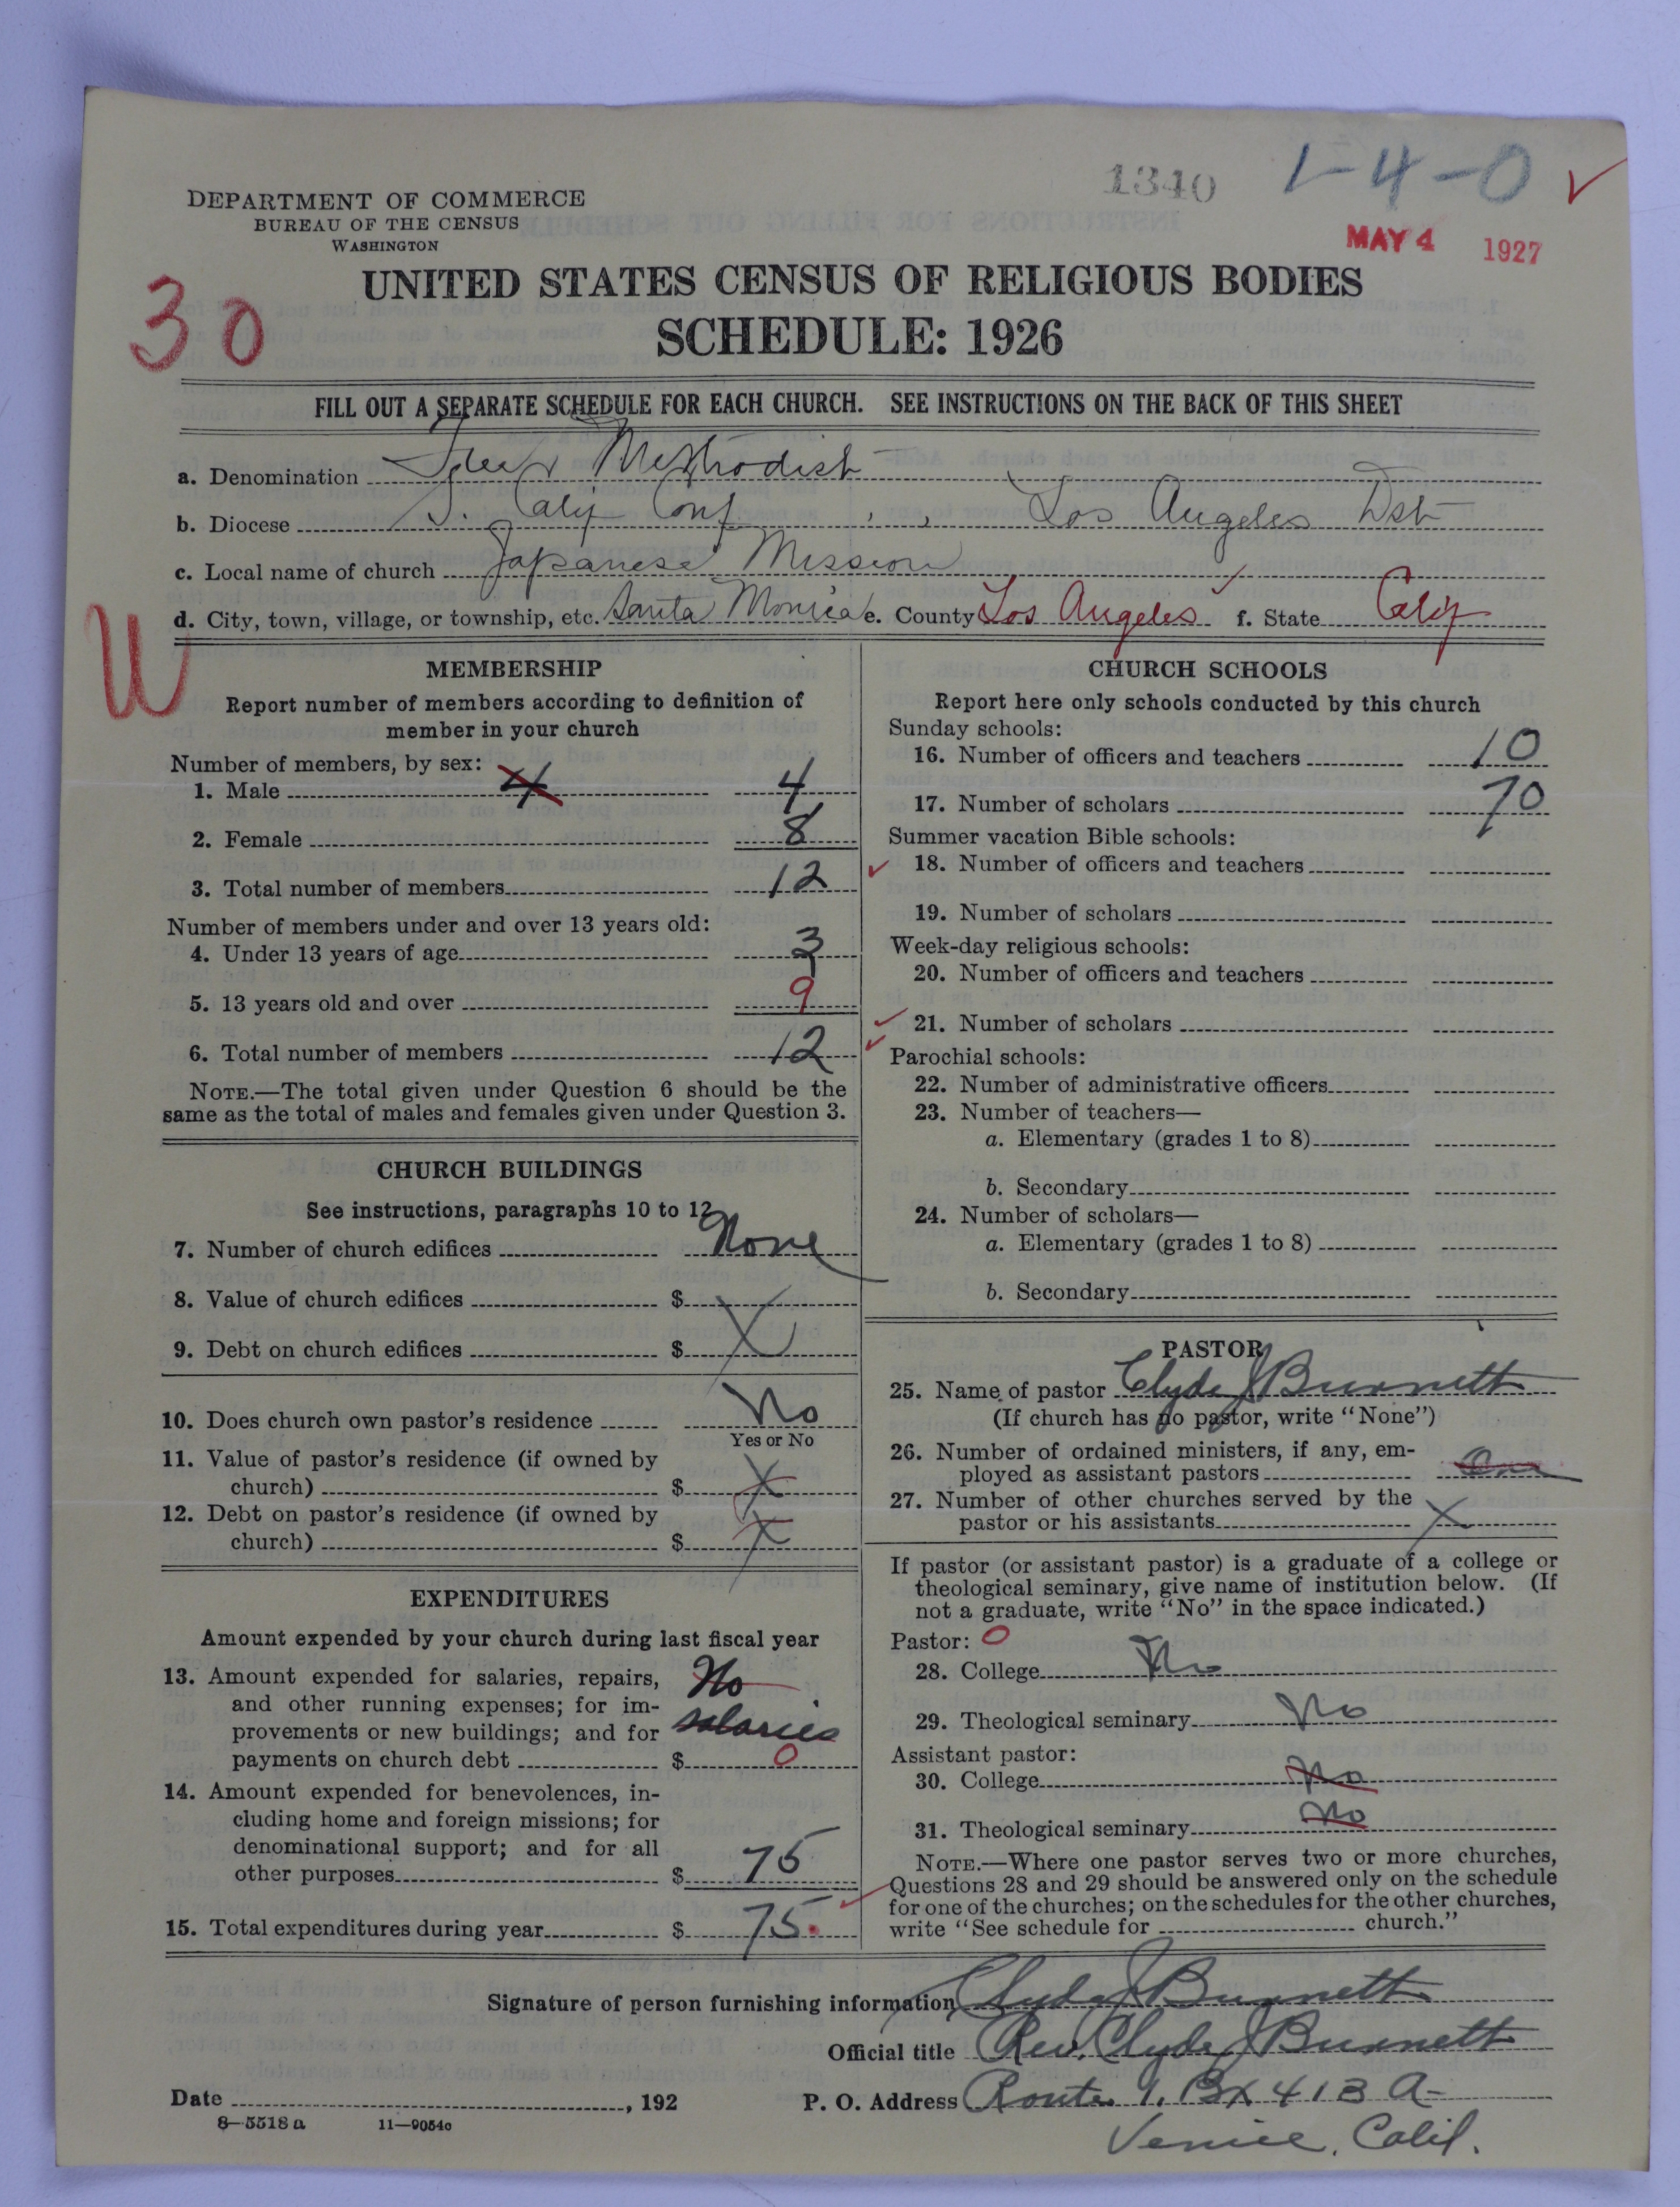 1340 1-4-0 ✓
DEPARTMENT OF COMMERCE
BUREAU OF THE CENSUS
WASHINGTON
MAY 4 1927
30
UNITED STATES CENSUS OF RELIGIOUS BODIES
SCHEDULE: 1926
FILL OUT A SEPARATE SCHEDULE FOR EACH CHURCH. SEE INSTRUCTIONS ON THE BACK OF THIS SHEET
a. Denomination Free Methodist
b. Diocese S. Calif Conf , , Los Angeles Dst
c. Local name of church Japanese Mission
d. City, town, village, or township, etc. Santa Monica e. County Los Angeles f. State Calif
W
MEMBERSHIP
Report number of members according to definition of
member in your church
Number of members, by sex:
1. Male 4 4
2. Female 8
3. Total number of members 12
Number of members under and over 13 years old:
4. Under 13 years of age 3
5. 13 years old and over 9
6. Total number of members 12
NOTE.—The total given under Question 6 should be the
same as the total of males and females given under Question 3.
CHURCH BUILDINGS
See instructions, paragraphs 10 to 12
7. Number of church edifices None
8. Value of church edifices $ X
9. Debt on church edifices $
10. Does church own pastor's residence No
Yes or No
11. Value of pastor's residence (if owned by
church) $ X
12. Debt on pastor's residence (if owned by
church) $ X
EXPENDITURES
Amount expended by your church during last fiscal year
13. Amount expended for salaries, repairs,
and other running expenses; for im-
provements or new buildings; and for
payments on church debt $ 0
No
salaries
14. Amount expended for benevolences, in-
cluding home and foreign missions; for
denominational support; and for all
other purposes $ 75
15. Total expenditures during year $ 75.
CHURCH SCHOOLS
Report here only schools conducted by this church
Sunday schools:
16. Number of officers and teachers 10
17. Number of scholars 70
Summer vacation Bible schools:
18. Number of officers and teachers
19. Number of scholars
Week-day religious schools:
20. Number of officers and teachers
21. Number of scholars
Parochial schools:
22. Number of administrative officers
23. Number of teachers—
a. Elementary (grades 1 to 8)
b. Secondary
24. Number of scholars—
a. Elementary (grades 1 to 8)
b. Secondary
PASTOR
25. Name of pastor Clyde J Burnett
(If church has no pastor, write "None")
26. Number of ordained ministers, if any, em-
ployed as assistant pastors One
27. Number of other churches served by the
pastor or his assistants X
If pastor (or assistant pastor) is a graduate of a college or
theological seminary, give name of institution below. (If
not a graduate, write "No" in the space indicated.)
Pastor: 0
28. College No
29. Theological seminary No
Assistant pastor:
30. College No
31. Theological seminary No
NOTE.—Where one pastor serves two or more churches,
Questions 28 and 29 should be answered only on the schedule
for one of the churches; on the schedules for the other churches,
write "See schedule for church."
Signature of person furnishing information Clyde J Burnett
Official title Rev. Clyde J Burnett
Date , 192 P. O. Address Route 1. Bx 413 A-
8-5518 a 11-9054c Venice, Calif.